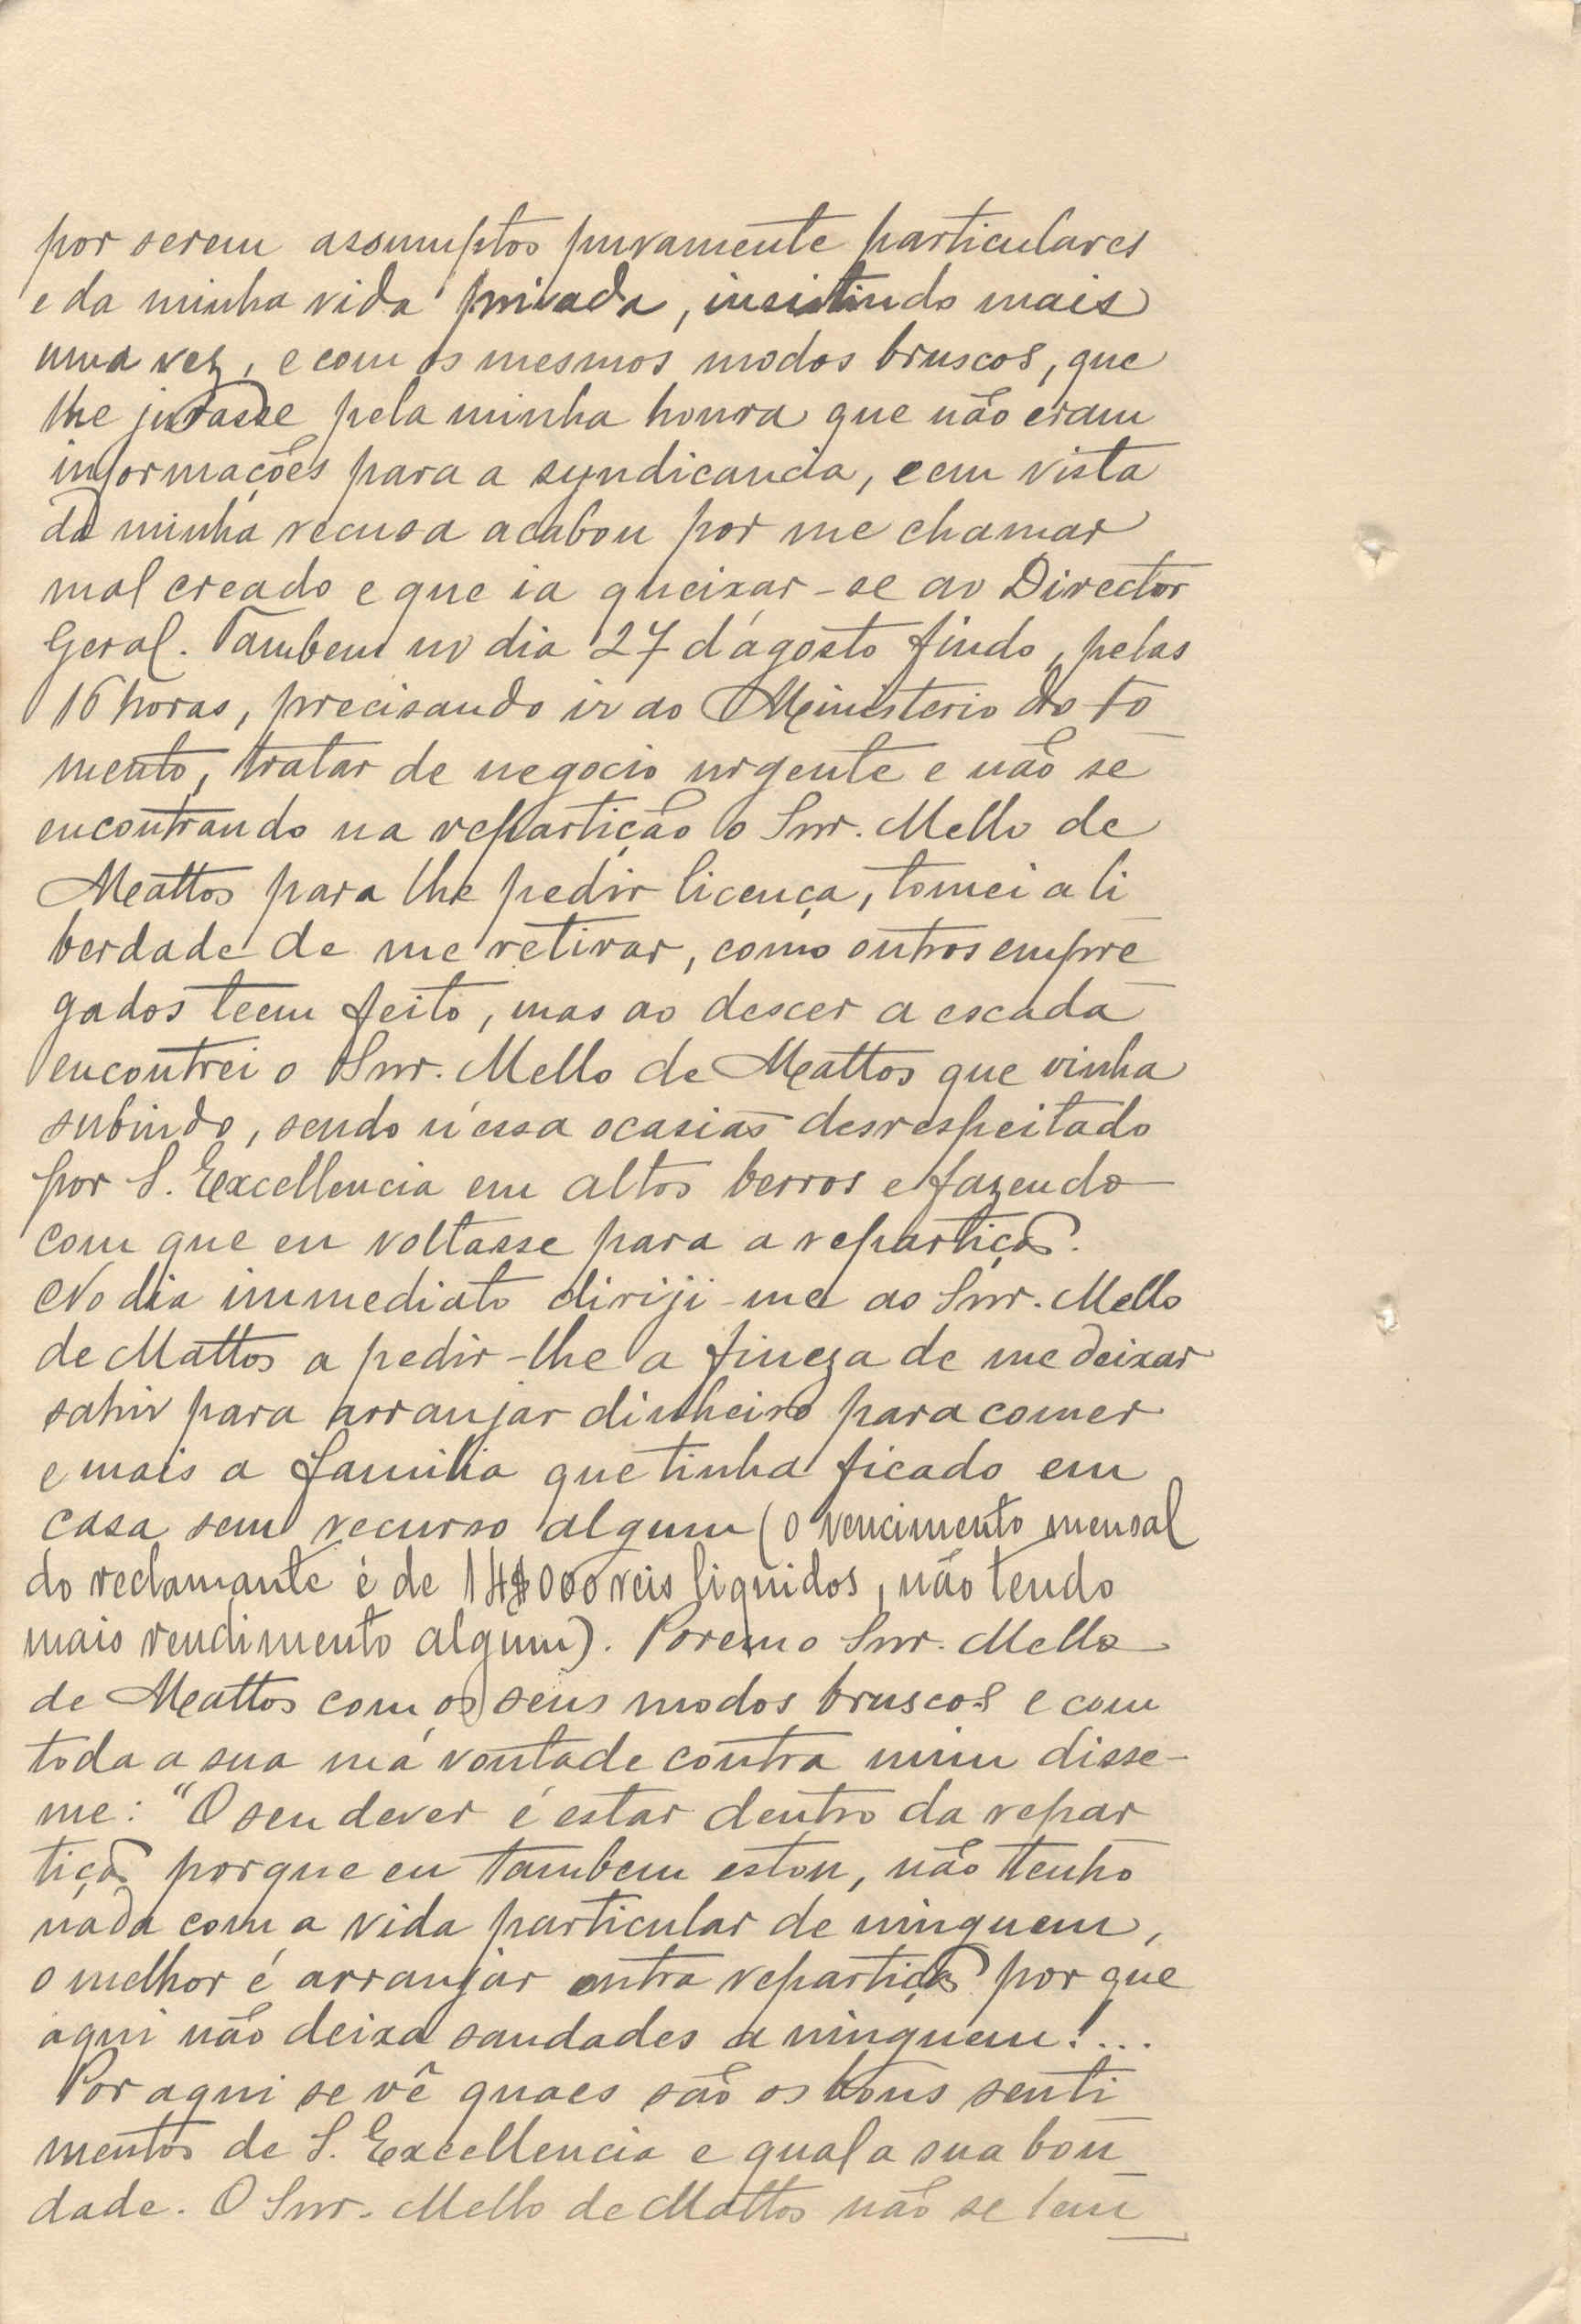 por serem assumptos puramente particulares
e da minha vida privada, insistindo mais
uma vez, e com os mesmos modos bruscos, que
lhe jurasse pela minha honra que não eram
informações para a syndicancia, e em vista
da minha recusa acabou por me chamar
mal creado e que ia queixar-se ao Director
Geral. Tambem no dia 27 d'agosto findo, pelas
16 horas, precisando ir ao Ministerio do Fo
mento, tratar de negocio urgente e não se
encontrando na repartição o Snr. Mello de
Mattos para lhe pedir licença, tomei a li
berdade de me retirar, como outros empre
gados teem feito, mas ao descer a escada
encontrei o Snr. Mello de Mattos que vinha
subindo, sendo n'essa ocasião desrespeitado
por S. Excellencia em altos berros e fazendo
com que eu voltasse para a repartição.
No dia immediato diriji-me ao Snr. Mello
de Mattos a pedir-lhe a fineza de me deixar
sahir para arranjar dinheiro para comer
e mais a familia que tinha ficado em
casa sem recurso algum (o vencimento mensal
do reclamante é de 14$000 reis liquidos, não tendo
mais rendimento algum). Porem o Snr. Mello
de Mattos com os seus modos bruscos e com
toda a sua má vontade contra mim disse-
me: "O seu dever é estar dentro da repar
tição porque eu tambem estou, não tenho
nada com a vida particular de ninguem,
o melhor é arranjar outra repartição por que
aqui não deixa saudades a ninguem!...
Por aqui se vê quaes são os bons senti
mentos de S. Excellencia e qual a sua bon
dade. O Snr. Mello de Mattos não se lem